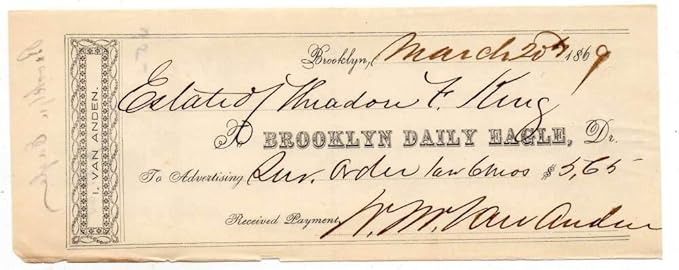 Brooklyn, March 20th 1869
Estate of Theadore F. King
To BROOKLYN DAILY EAGLE, Dr.
To Advertising Sur. Order $5,65
Received Payment, W. M. Van Anden
I. VAN ANDEN.